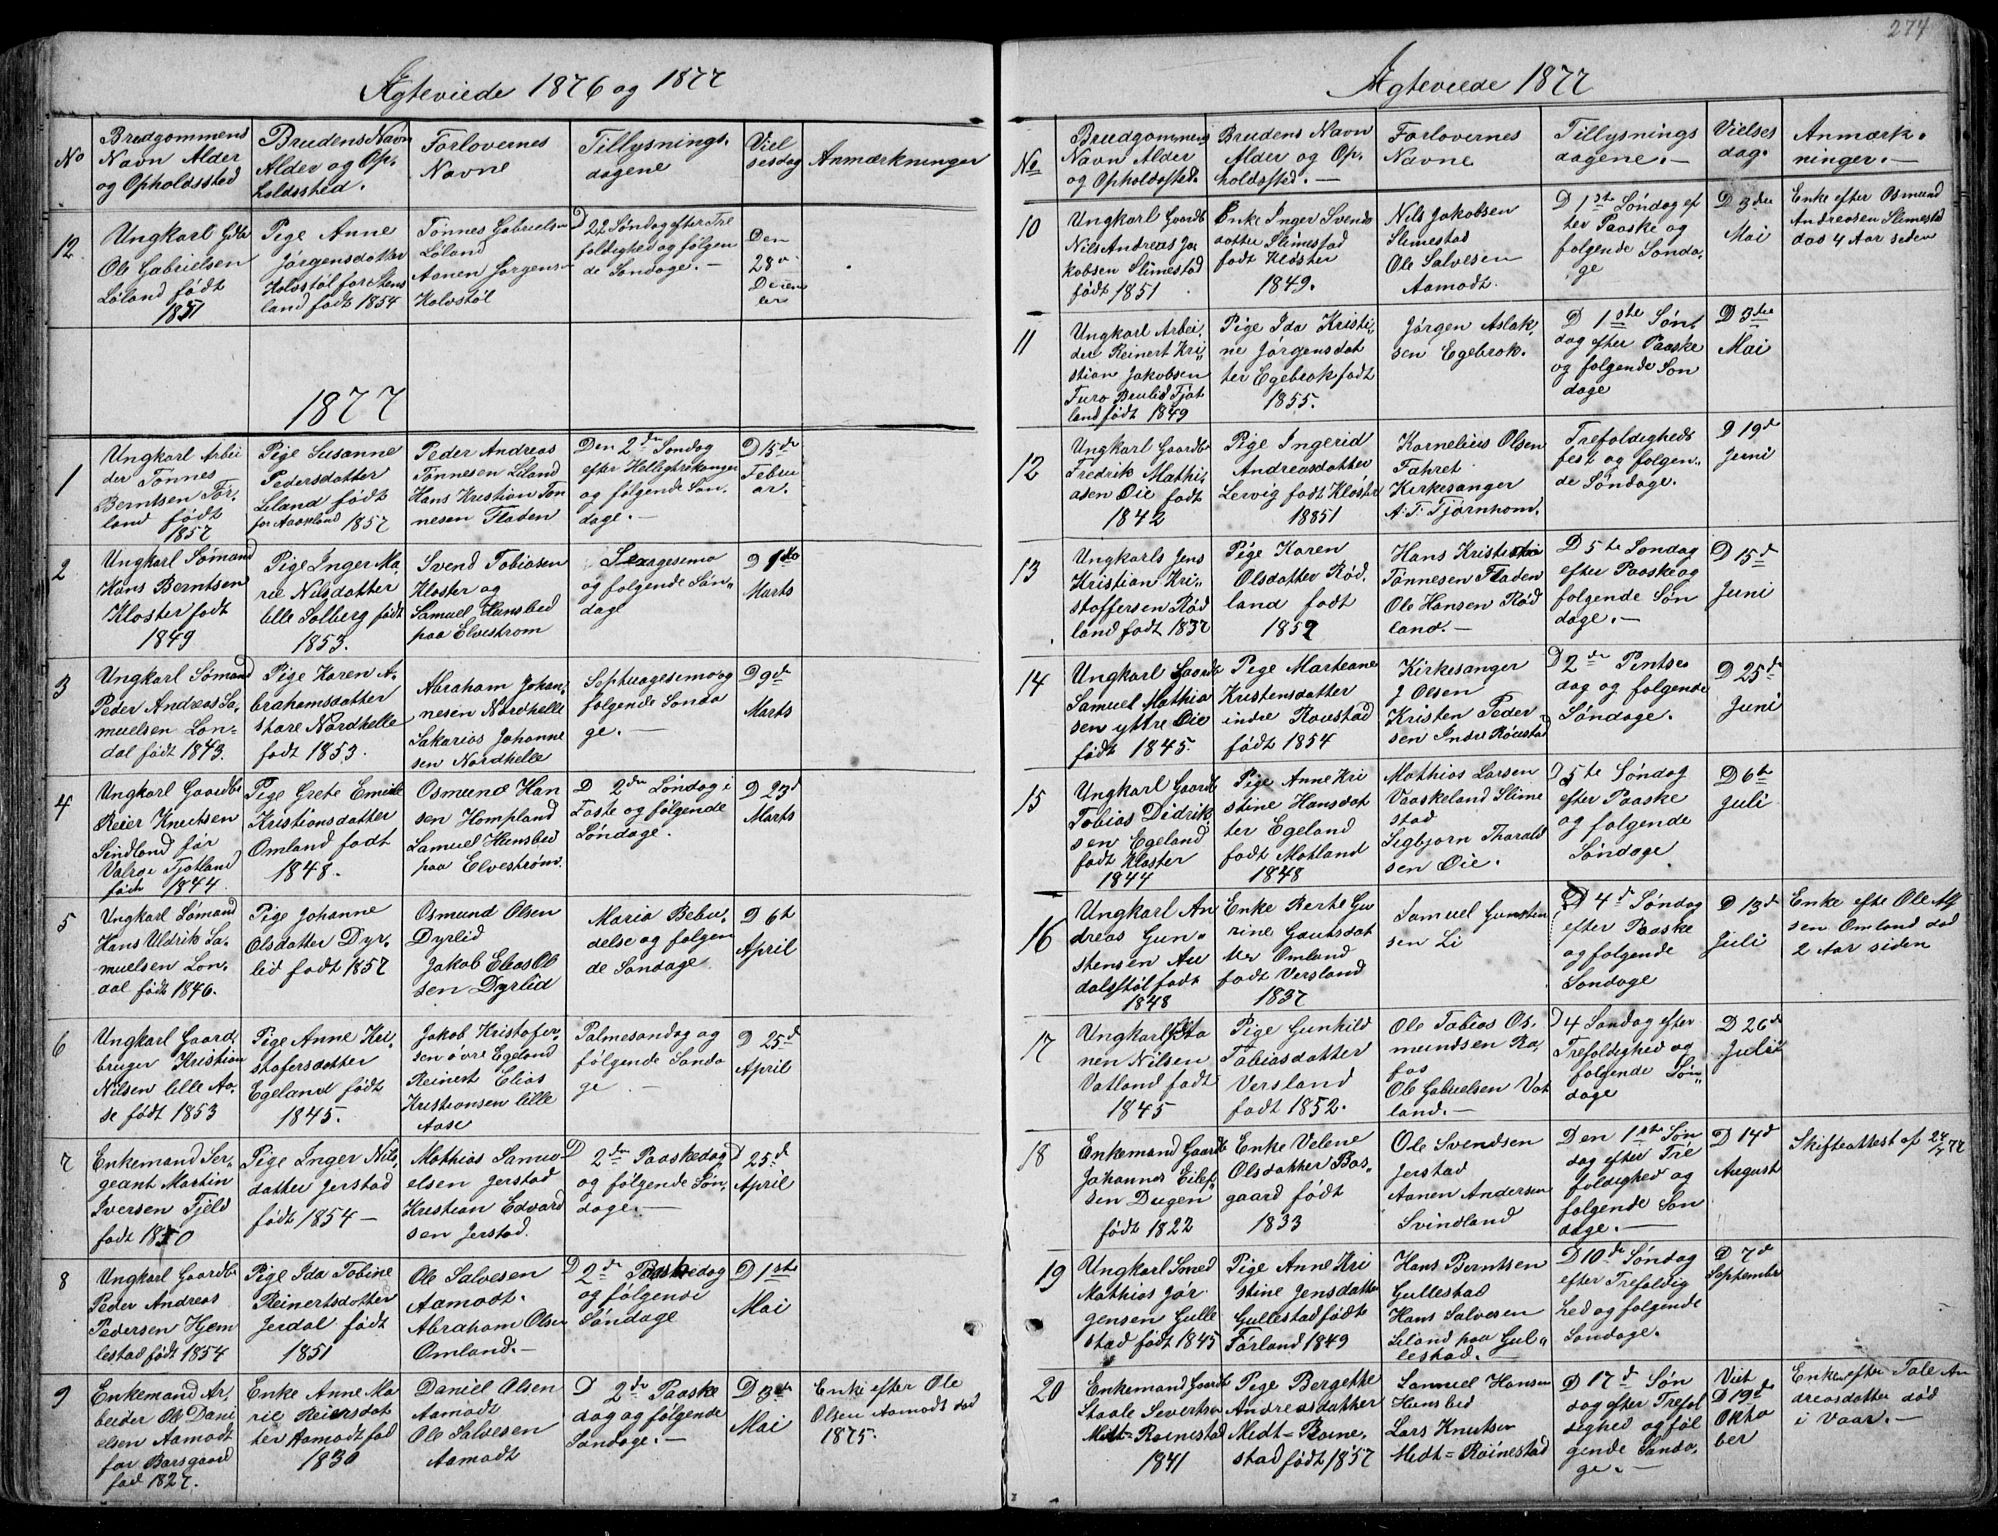 274
Ægteviede 1876 og 1877
No
Brudgommens
Navn Alder
og Opholdssted
Brudens Navn
Alder og Op-
holdssted.
Forlovernes
Navne
Tillysnings-
dagene
Viel
sesdag
Anmærkninger
12
Ungkarl Gdbr
Ole Gabrielsen
Løland født
1851
Pige Anne
Jørgensdatter
Kolvstøl for Stens
land født 1854
Tønnes Gabrielsen
Løland
Aanen Jørgens-
Kolvstøl
D 22 Søndag efter Tre
foldighed og følgen
de Søndage. –
Den
28de
Decem
ber
1877
1
Ungkarl Arbei
der Tønnes
Berntsen Før-
land født
1857
Pige Susanne
Pedersdatter
Liland født
for Aaseland 1857
Peder Andreas
Tønnesen Liland
Hans Kristian Tøn
nesen Fladen
Den 2den Søndag
efter Helligtrekonger
og følgende Søn-
dage. –
D 15de
Febru
ar.
2
Ungkarl Sømand
Hans Berntsen
Kloster født
1849
Pige Inger Ma-
rie Nilsdatter
lille Solberg født
1853.
Svend Tobiasen
Kloster og
Samuel Hunsbed
paa Elvestrøm
Sexagesima
og følgende Søn-
dage
D 1ste
Marts
3
Ungkarl Sømand
Peder Andreas Sa-
muelsen Lon-
dal født 1843.
Pige Karen A-
brahamsdatter
store Nordhelle
født 1853.
Abraham Johan-
nesen Nordhelle
Sakarias Johanne
sen Nordhelle
Septuagesima og
følgende Sønda
ge. –
D 9de
Marts
4
Ungkarl Gaardbr
Reier Knutsen
Sindland før
Valege Fjotland
føde 1844.
Pige Grete Emilie
Kristiansdatter
Omland født
1848.
Osmund Han
sen Hompland
Samuel Hunsbed
paa Elvestrøm.
D 2den Søndag i
Faste og følgende
Søndage.
D 23d
Marts
5
Ungkarl Sømand
Hans Uldrik Sa-
muelsen Lon-
dal født 1846.
Pige Johanne
Olsdatter Dyr-
lid født 1857
Osmund Olsen
Dyrlid
Jakob Elias Ol
sen Dyrlid
Maria Bebu-
delse og følgen
de Søndage
D 6te
April
6
Ungkarl Gaard-
bruger Kristian
Nilsen lille Aa-
se født 1853
Pige Anne Kri-
stofersdatter
Egeland født
1845.
Jakob Kristofer-
sen øvre Egeland
Reinert Elias
Kristiansen lille
Aase
Palmesøndag og
følgende Sønda
ge –
D 25de
April
7
Enkemand Ser-
geant Martin
Iversen Fjeld
født 1850
Pige Inger Nils-
datter Jerstad
født 1854 –
Mathias Samu-
elsen Jerstad
Kristian Edvard
sen Jerstad.
D 2den Paaskedag
og følgende Søn-
dage. –
D 25de
April
8
Ungkarl Gaardbr
Peder Andreas
Pedersen Hjem
lestad født 1854
Pige Ida Tobine
Reinertsdatter
Jerdal født
1851
Ole Salvesen
Aamodt.
Abraham Olsen
Omland. –
D 2den Paaskedag
og følgende
Søndage
D 1ste
Mai
9
Enkemand Ar-
beider Ole Dani
elsen Aamodt
før Borsgaard
fød 1827.
Enke Anne Ma-
rie Reiersdat
ter Aamodt fød
1830
Daniel Olsen
Aamodt
Ole Salvesen
Aamodt
D 2den Paaske
dag og følgende
Søndage. –
D 3die
Mai
Enke efter Ole
Olsen Aamodt død
1875.
Ægteviede 1877
No
Brudgommens
Navn Alder
og Opholdssted.
Brudens Navn
Alder og Op-
holdssted. –
Forlovernes
Navne
Tillysnings
dagene. –
Vielses
dag.
Anmærk-
ninger. –
10
Ungkarl Gaardbr
Nils Andreas Ja
kobsen Slimestad
født 1851
Enke Inger Svends
datter Slimestad
født Kloster
1849.
Nils Jakobsen
Slimestad
Ole Salvesen
Aamodt.
D 1ste Søndag ef
ter Paaske og
følgende Sønda-
ge
D 3die
Mai
Enke efter Osmund
Andreasen Slimestad
død 4 Aar siden
11
Ungkarl Arbei-
der Reinert Kri-
stian Jakobsen
Furø Beulid Fjot
land født 1849
Pige Ida Kristi-
ne Jørgensdat
ter Egebrok født
1855.
Jørgen Aslak-
sen Egebrok.
D 1ste Søn-
dag efter Paaske
og følgende Søn
dage
D 3die
Mai
12
Ungkarl Gaardbr
Fredrik Mathi-
asen Øie født
1842
Pige Ingerid
Andreasdatter
Lervig født Kloster
18851
Kornelius Olsen
Fahret
Kirkesanger
A. T. Tjørnhom.
Trefoldigheds
fest og følgen-
de Søndage.
D 19d
Juni
13
Ungkarls Jens
Kristian Kri-
stoffersen Rød
land født 1837
Pige Karen
Olsdatter Rød-
land født
1852
Hans Kristian
Tønnesen Fladen
Ole Hansen Rød
land. –
D 5te Søndag
efter Paaske og
følgende Søn
dage. –
D 15d
Juni
14
Ungkarl Gaardb
Samuel Mathia
sen yttre Øie
født 1845.
Pige Marteane
Kristensdatter
indre Roustad
født 1854
Kirkesanger
J Olsen
Kristen Peder
sen Indre Roustad
D 2den Pintse
dag og følgende
Søndage.
D 25de
Juni
15
Ungkarl Gaardb
Tobias Didrik-
sen Egeland
født Kloster
1844
Pige Anne Kri
stine Hansdat
ter Egeland
født Motland
1848
Mathias Larsen
Vaaskeland Slime
stad
Sigbjørn Tharald
sen Øie.
D 5te Søndag
efter Paaske
og følgende
Søndage
D 6te
Juli
16
Ungkarl An
dreas Gun-
stensen Au
dalsstøl født
1848
Enke Berte Gu
rine Gautsdat
ter Omland
født Versland
1837
Samuel Gunsten
sen Li
D 4d Søndag
efter Paaske
og følgende
Søndage
D 13de
Juli
Enke efte Ole Alf
sen Omland død
2 Aar siden
17
Ungkarl Aa
nen Nilsen
Vatland født
1845
Pige Gunhild
Tobiasdatter
Versland
født 1852.
Ole Tobias Os-
mundsen Ra-
fos
Ole Gabrielsen Vat
land. –
D 4 Søndag efter
Trefoldighed og
følgende Søn-
dage
D 26de
Juli
18
Enkemand Gaardb
Johannes Eilef-
sen Dugen
født 1822
Enke Velene
Olsdatter Bos-
gaard født
1833
Ole Svendsen
Jerstad
Aanen Andersen
Svindland
Den 1ste Søn
dag efter Tre
foldighed og
følgende Søn
dage. –
D 14d
August
Skifteattest af 24/7 77
19
Ungkarl Smed
Mathias Jør
gensen Gulle
stad født 1845
Pige Anne Kri
stine Jensdatter
Gullestad født
Førland 1849
Hans Berntsen
Gullestad
Hans Salvesen
Liland paa Gul-
lestad. –
D 10de Søndag
efter Trefoldig
hed og følgende
Søndage.
D 7d
September
20
Enkemand Gaardb
Staale Severtsen
Medt=Roinestad
1841
Pige Bergette
Andreasdatter
Medt=Roine-
stad født 1857
Samuel Hansen
Hunsbed
Lars Knutsen
Medt=Roinestad
D 17d Søn
dag efter Trefol
dighed og føl
gende Sønda-
ge. –
Viet
D 19de
Okto
ber
Enkem efter Tale An
dreasdatter død
i Vaar. –